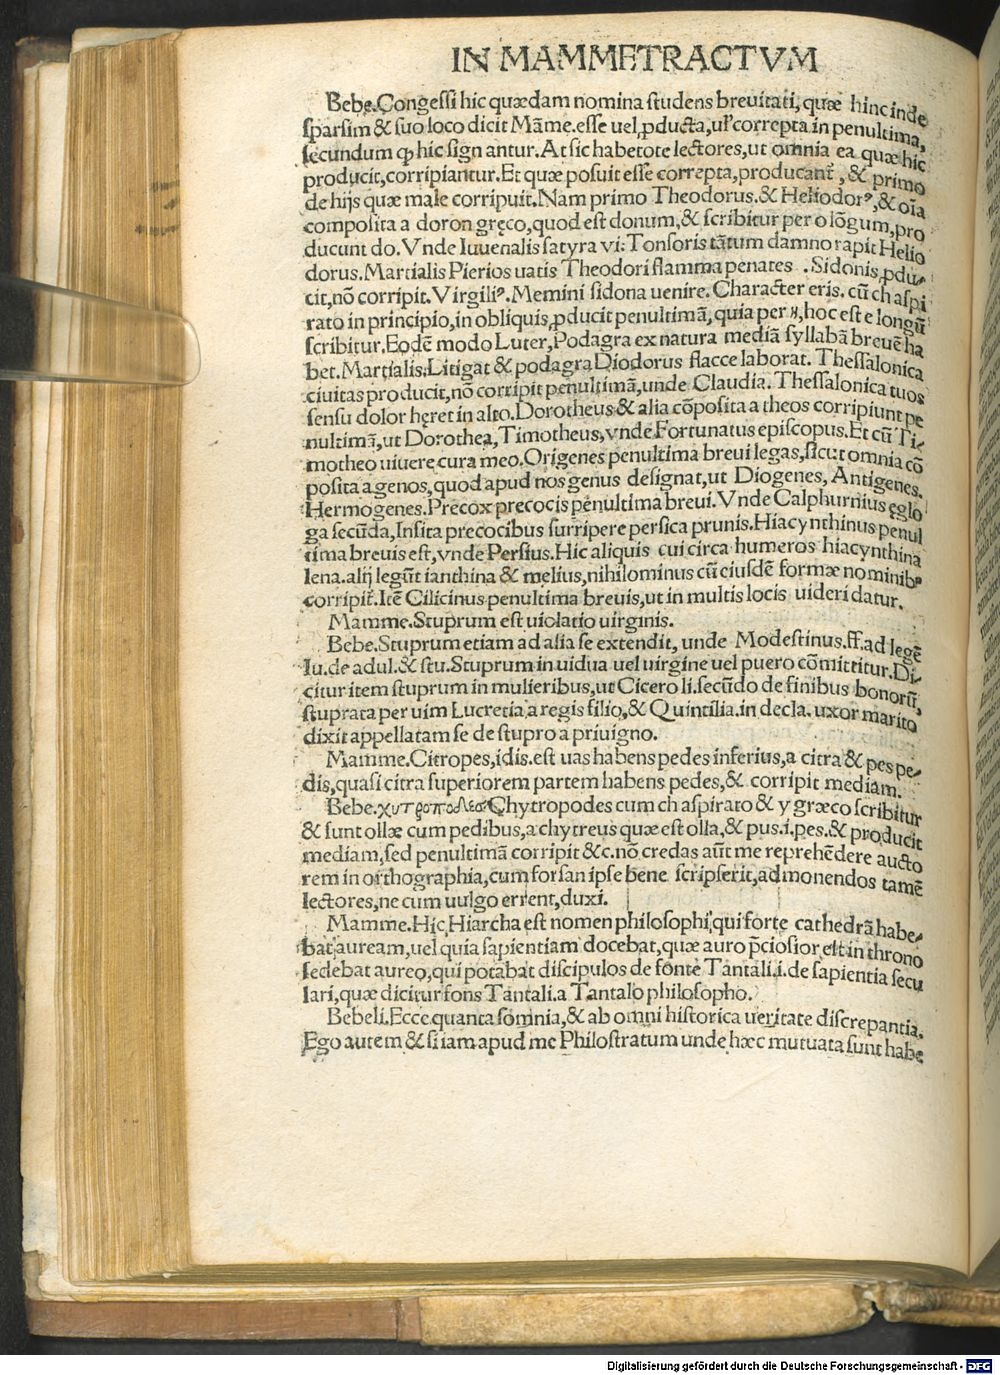 IN MAMMETRACTVM
Bebe.Congessi hic quædam nomina studens breuitati, quæ hinc inde
sparsim & suo loco dicit Mãme.esse uel,pducta,uł correpta in penultima,
secundum ꝙ hic sign antur. At sic habetote lectores,ut omnia ea quæ hic
producit,corripiantur.Et quæ posuit esse correpta,producant᷑, & primo
de hijs quæ male corripuit.Nam primo Theodorus.& Heliodorꝰ,& oĩa
composita a doron gręco,quod est donum,& scribitur per o lõgum,pro
ducunt do.Vnde Iuuenalis satyra vi: Tonsoris tãtum damno rapit Helio
dorus.Martialis Pierios uatis Theodori flamma penates .Sidonis,pdu-
cit,nõ corripit.Virgiliꝰ.Memini sidona uenire.Character eris. cũ ch aspi
rato in principio,in obliquis,pducit penultimã,quia per η,hoc est e longũ
scribitur.Eodẽ modo Luter,Podagra ex natura mediã syllabã breuẽ ha
bet.Martialis.Litigat & podagra Diodorus flacce laborat. Thessalonica
ciuitas producit,nõ corripit penultimã,unde Claudia. Thessalonica tuos
sensu dolor hęret in alto.Dorotheus & alia cõposita a theos corripiunt pe
nultimã,ut Dorothea,Timotheus,vnde Fortunatus episcopus.Et cũ Ti-
motheo uiuere cura meo.Origenes penultima breui legas,sicut omnia cõ
posita a genos,quod apud nos genus designat,ut Diogenes, Antigenes.
Hermogenes.Precox precocis penultima breui.Vnde Calphurnius ęglo
ga secũda,Insita precocibus surripere persica prunis.Hiacynthinus penul
tima breuis est,vnde Persius.Hic aliquis cui circa humeros hiacynthina
lena.alij legũt ianthina & melius,nihilominus cũ eiusdẽ formæ nominibꝰ
corripit᷑.Itẽ Cilicinus penultima breuis,ut in multis locis uideri datur.
Mamme.Stuprum est uiolatio uirginis.
Bebe.Stuprum etiam ad alia se extendit, unde Modestinus.ff.ad legẽ
Iu.de adul.& stu.Stuprum in uidua uel uirgine uel puero cõmittitur.Di-
citur item stuprum in mulieribus,ut Cicero li.secũdo de finibus bonorũ,
stuprata per uim Lucretia a regis filio,& Quintilia.in decla.uxor marito
dixit appellatam se de stupro a priuigno.
Mamme.Citropes,idis.est uas habens pedes inferius,a citra & pes pe-
dis,quasi citra superiorem partem habens pedes,& corripit mediam.
Bebe.χυτροποδες Chytropodes cum ch aspirato & y græco scribitur
& sunt ollæ cum pedibus,a chytreus quæ est olla,& pus.i.pes.& producit
mediam,sed penultimã corripit &c.nõ credas aũt me reprehẽdere aucto
rem in orthographia,cum forsan ipse bene scripserit,admonendos tamẽ
lectores,ne cum uulgo errent,duxi.
Mamme.Hic Hiarcha est nomen philosophi,qui forte cathedrã habe-
bat auream,uel quia sapientiam docebat,quæ auro p̃ciosior est in throno
sedebat aureo,qui potabat discipulos de fonte Tantali.i.de sapientia secu
lari,quæ dicitur fons Tantali.a Tantalo philosopho.
Bebeli.Ecce quanta somnia,& ab omni historica ueritate discrepantia.
Ego autem & si iam apud me Philostratum unde hæc mutuata sunt habe
Digitalisierung gefördert durch die Deutsche Forschungsgemeinschaft - DFG